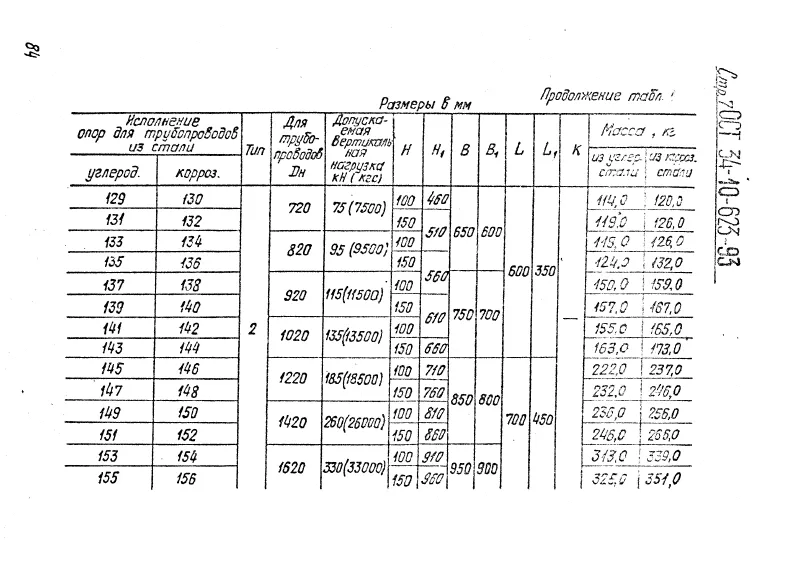 84
Продолжение табл. 1
Размеры в мм
Стр. 7 ОСТ 34-10-623-93
Исполнение опор для трубопроводов из стали | Тип | Для трубопроводов Dн | Допускаемая вертикальная нагрузка кН (кгс) | H | H₁ | B | B₁ | L | L₁ | K | Масса, кг
углерод. | корроз. | из углер. стали | из корроз. стали
129 130 2 720 75(7500) 100 460 650 600 600 350 — 114,0 120,0
131 132 150 510 119,0 126,0
133 134 820 95(9500) 100 115,0 126,0
135 136 150 560 124,0 132,0
137 138 920 115(11500) 100 750 700 150,0 159,0
139 140 150 610 157,0 167,0
141 142 1020 135(13500) 100 155,0 165,0
143 144 150 660 163,0 173,0
145 146 1220 185(18500) 100 710 850 800 700 450 222,0 237,0
147 148 150 760 232,0 246,0
149 150 1420 260(26000) 100 810 236,0 256,0
151 152 150 860 246,0 266,0
153 154 1620 330(33000) 100 910 950 900 313,0 339,0
155 156 150 960 325,0 351,0